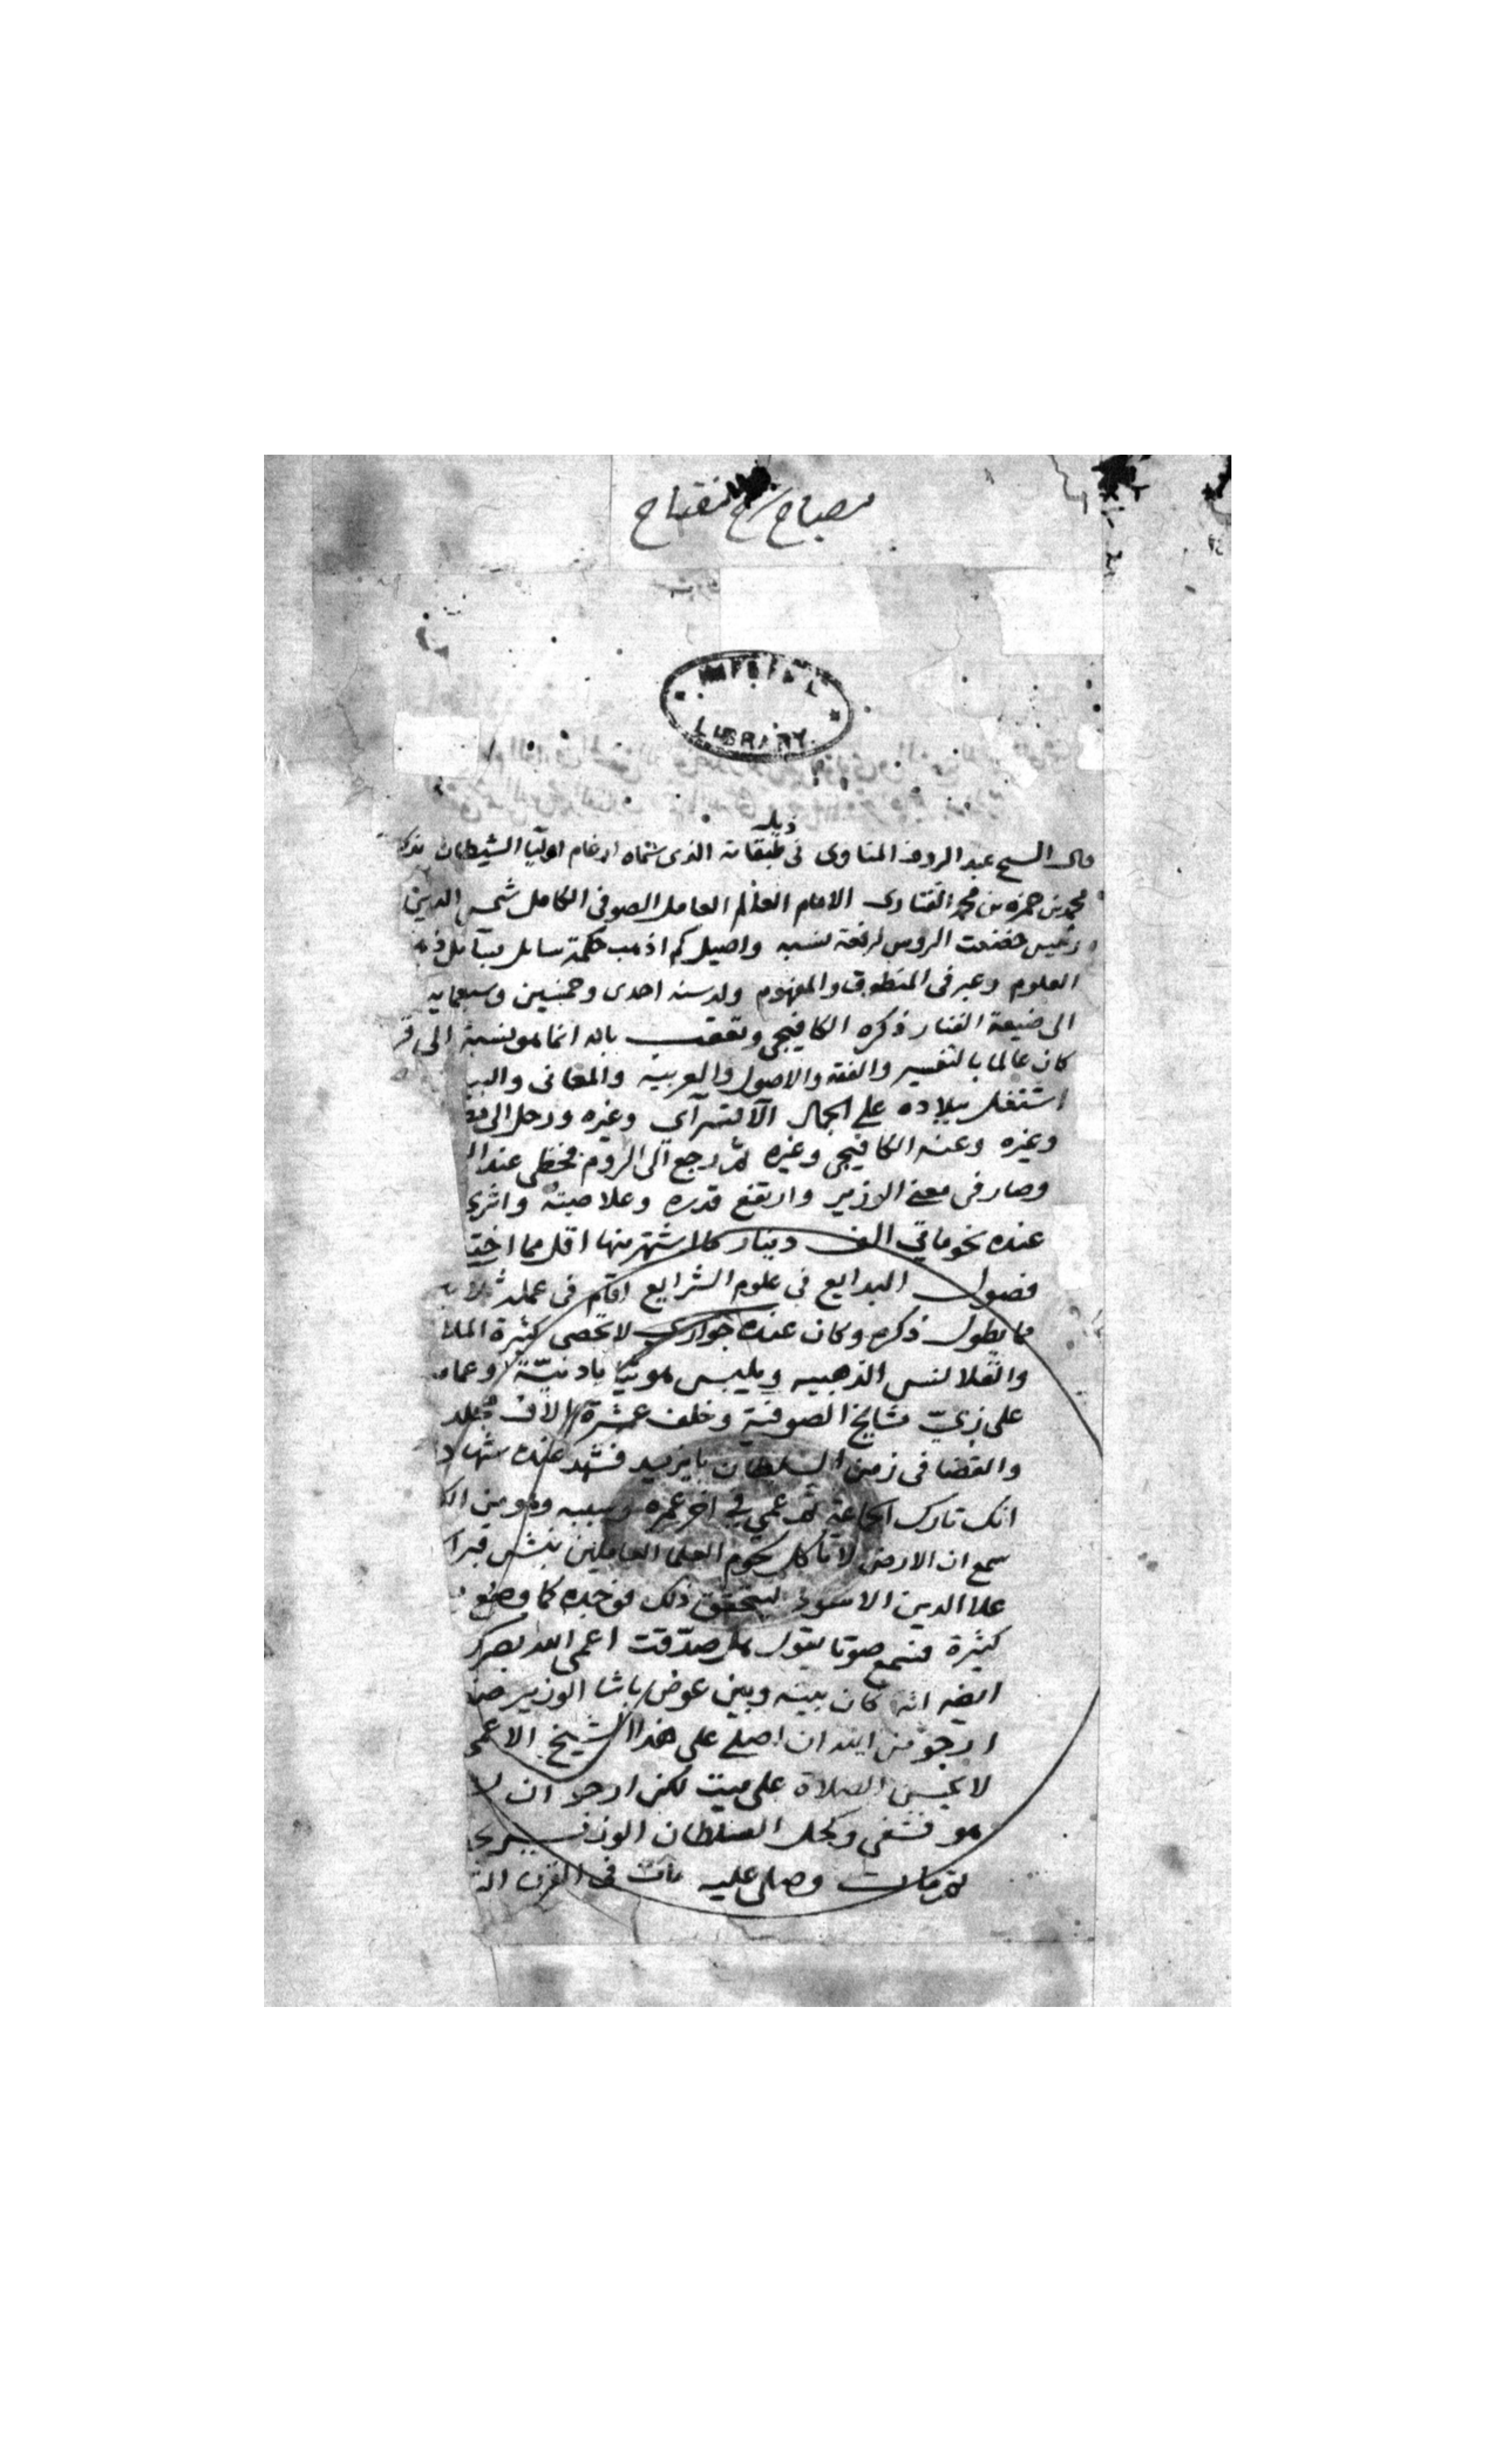 مصباح شرح مفتاح
IMPERIAL
LIBRARY
ذيل
قال الشيخ عبد الروف المناوى فى طبقاته الذى سماه ارغام اوليآ الشيطان بذكر
محمد بن حمزه بن محمد الفنارى الامام العالم العامل الصوفى الكامل شمس الدين
رئيس خضعت الروس لرفعة نسبه واصيل كم اذهب حكمة سايل
العلوم وعبر فى المنطوق والمفهوم ولد سنه احدى وخمسين وسبعمايه
الى ضيعة الفنار ذكره الكافيجى وتعقب بانه انما هو نسبة الى قر
كان عالما بالتفسير والفقه والاصول والعربية والمعانى والبي
اشتغل ببلاده على الجمال الآقسرآى وغيره ورحل الى
وغيره وعنه الكافيجى وغيره ثم رجع الى الروم فحظى عند ال
وصار فى معنى الوزير وارتفع قدره وعلا صيته واثرى
عنده نحو مائتى الف دينار كلا شتهر منها اقل مما
فصول البدايع فى علوم الشرايع اقام فى عمله
ما يطول ذكره وكان عنده جوارى لا تحصى كثرة
والقلانس الذهبيه ويلبس هو ثيابا دنيّة وعمامة
على زىّ مشايخ الصوفية وخلف عشرة الاف مجلد
والقضا فى زمن السلطان بايزيد فشهد عنده شهاد
انك تارك الجماعة ثم عمى فى اخر عمره وسببه وهو من الك
سمع ان الارض لا تاكل لحوم العلما العاملين نبش قبر ا
علا الدين الاسود ليتحقق ذلك فوجده كما وضع
كثيرة فسمع صوتا يقول هل صدقت اعمى الله بصرك
ايضه انه كان بينه وبين عوض باشا الوزير
ارجو من الله ان اصلى على هذا الشيخ الاعمى
لا يحسن الصلاة على ميت لكن ارجو ان
هو فشفى وكحل السلطان الوزير
ثم مات وصلى عليه مات فى القرن الت